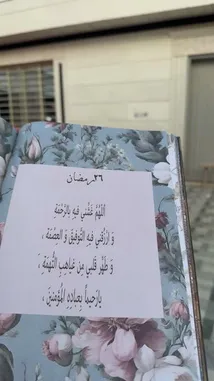 ٢٦رمضان
اَللّهُمَّ غَشِّنی فیهِ بِالرَّحْمَةِ
وَ ارْزُقنی فیهِ التَّوفیقَ وَ العِصْمَةَ ،
وَ طَهِّر قَلبی مِن غَیاهِبِ التُّهمَةِ ،
یارَحیماً بِعِبادِهِ المُؤمِنینَ ،